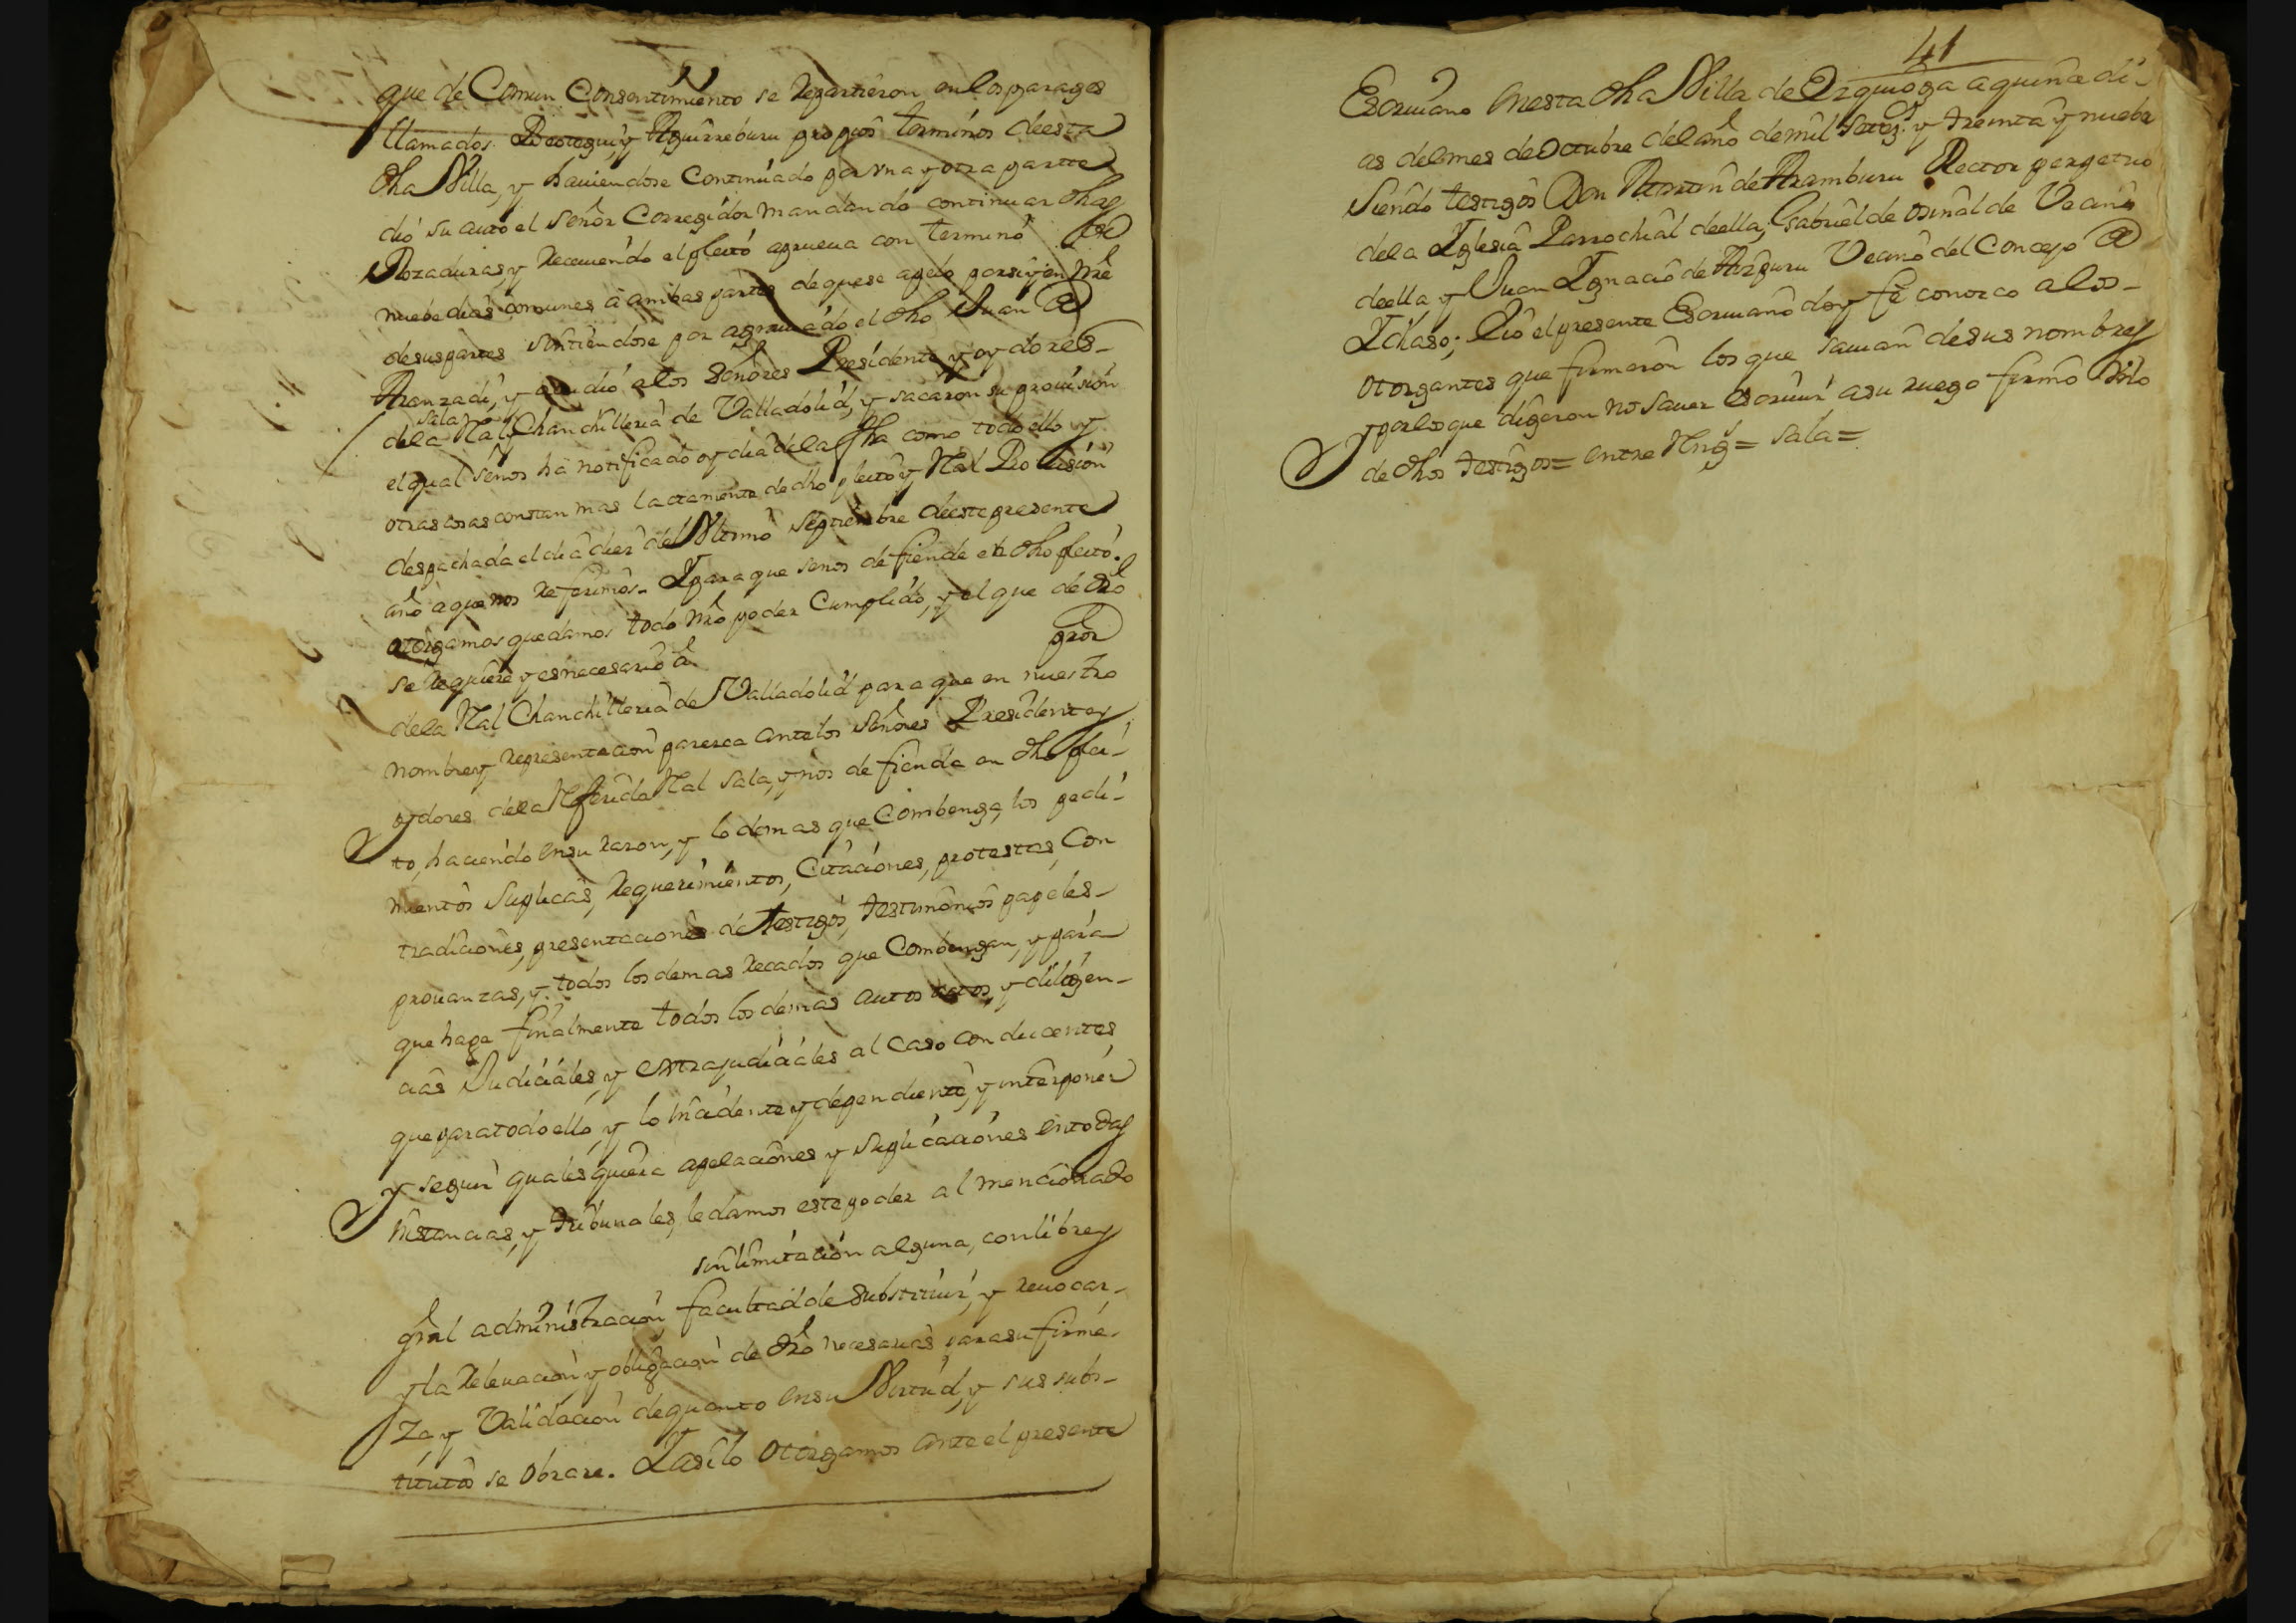 que de Comun Consentimiento se Repartieron en los parages
llamados Beotegui, y Aguirreburu propios terminos de esta
dha Villa, y hauiendose Continuado por vna y otra partte
dió su auto el Señor Corregidor mandando continuar dhas
Rozaduras, y Reciuiendo el pleito aprueua con termino de
nuebe dias comunes á ambas partes de que se apeló por si y en nre
de sus partes sintiendose por agrauiado el dho Juan de
Aranzadi, y acudió a los Señores Presidente y oydores
sala
de la Rl Chanchilleria de Valladolid, y sacaron su prouisión
el qual se nos há notificado oy dia de la fha como todo ello y
otras cosas constan mas lactamente de dho pleito y Rl Prouisión
despachada el dia diez del Vltimo Septiembre de este presente
año a que nos Referimos. Y para que se nos defiende en dho pleito.
otorgamos que damos todo nro poder Cumplido, y el que de dro
se Requiere y es necesario á pror
de la Rl Chanchilleria de Valladolid para que en nuestro
nombre y Representación parezca ante los Señores Presidente y
oydores de la Referida Rl Sala, y nos defienda en dho plei-
to, haciendo en su razon, y lo demas que Combenga, los pedi-
mentos Suplicas, Requerimientos, Citaciones, protestas, Con
tradiciones, presentaciones de testigos, testimonios papeles
prouanzas, y todos los demas Recados que Combengan, y para
que haga finalmente todos los demas autos actos, y diligen-
cias Judiciales, y extrajudiciales al Caso conducentes,
que para todo ello, y lo incidente y dependiente, y interponer
y seguir qualesquiera apelaciones y Suplicaciones en todas
instancias, y tribunales, le damos este poder al mencionado
sin limitación alguna, con libre y
gral administración, facultad de substituir, y reuocar,
y la Releuación y obligación de dro necesarias para su firme-
za y Validación de quanto en su Virtud, y sus subs-
titutos se obrare. Y asi lo otorgamos ante el presente
41
Escriuano en esta dha Villa de Ezquioga a quince di-
as del mes de Octubre del año de mil Settez.s y treinta y nuebe
Siendo testigos Don Martin de Aramburu Rector perpetuo
de la Yglesia Parrochial de ella, Gabriel de Osinalde Vecino
de ella y Juan Ygnacio de Aizpuru Vecino del Concejo de
Ychaso; é yo el presente Escriuano doy fe conozco a los
otorgantes que firmaron los que sauian de sus nombres
y por los que digeron no Sauer escriuir a su ruego firmó vno
de dhos testigos = entre Rng.s = sala =